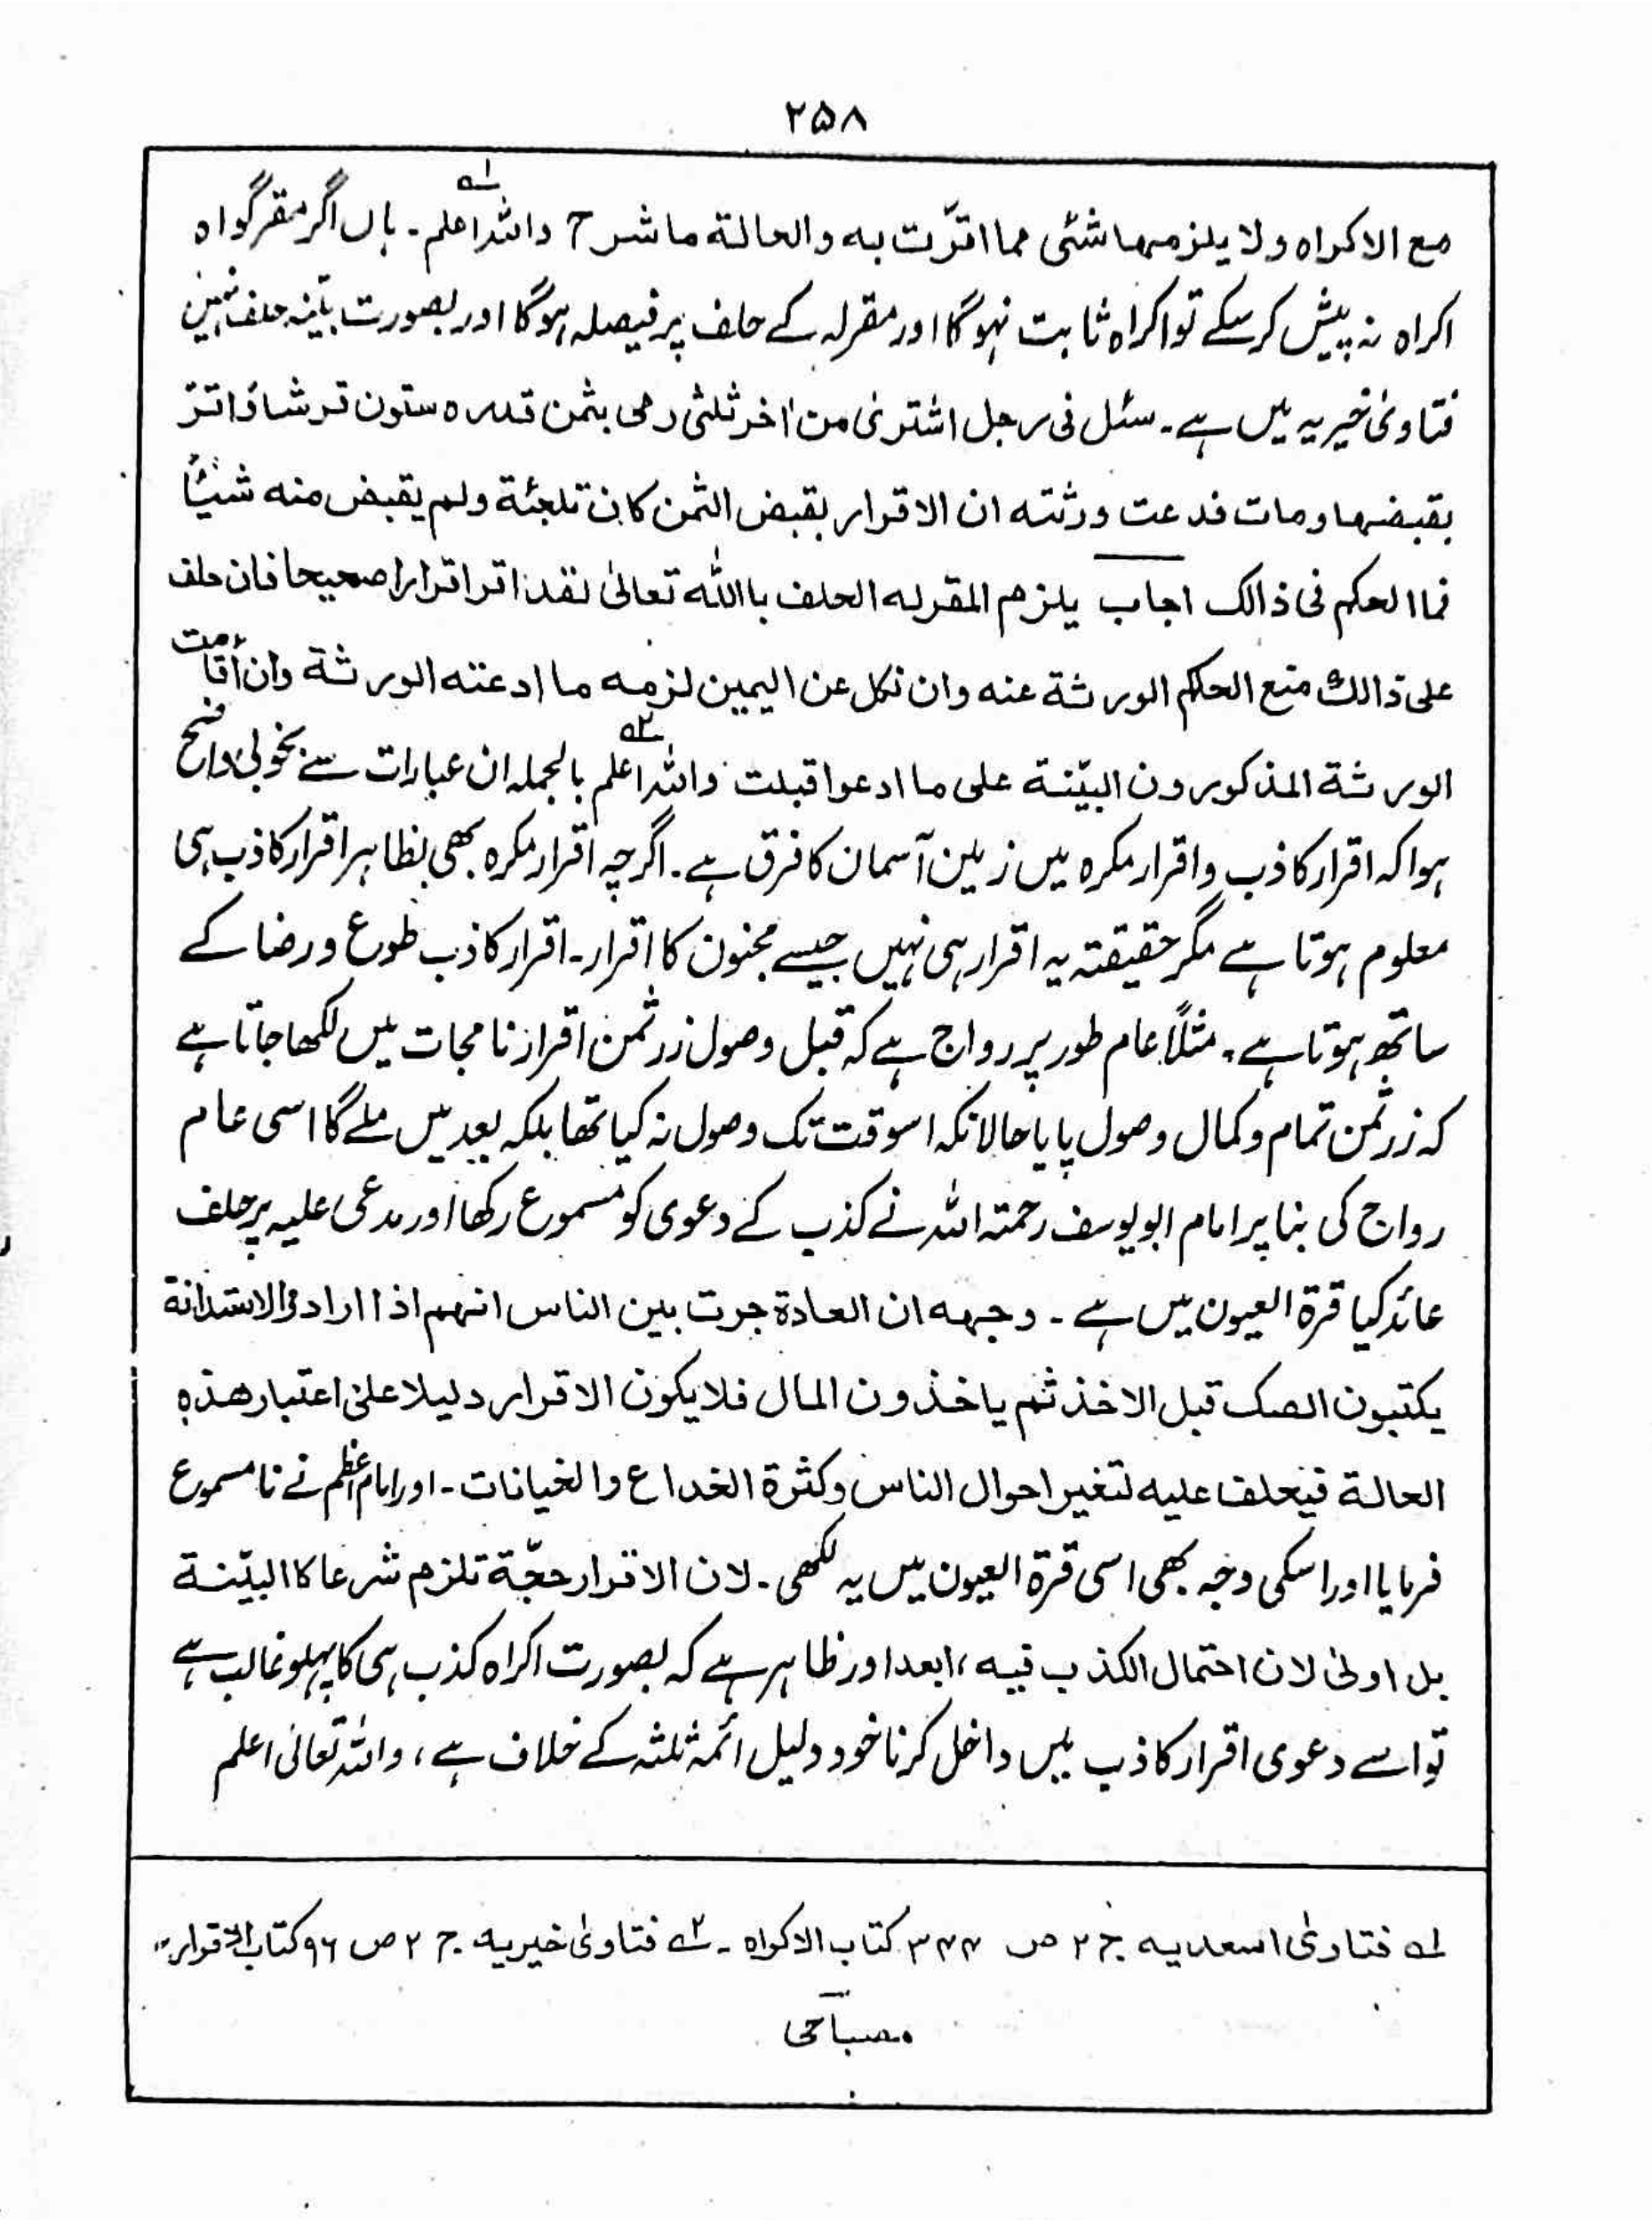 ۲۵۸
مع الاکراه ولا یلزمها شئی مما اقرّت به والحالة ما شرح والله اعلم۔ ہاں اگر مقر گواہ
اکراہ نہ پیش کرسکے تو اکراہ ثابت نہوگا اور مقرلہ کے حلف پر فیصلہ ہوگا اور بصورت بیّنہ حلف نہیں
فتاوىٰ خیریہ میں ہے۔ سئل فی رجل اشتریٰ من اٰخر ثلثی رحی بثمن قدره ستون قرشا ذا قرّ
بقبضها ومات فدعت ورثته ان الاقرار بقبض الثمن کان تلجئة ولم یقبض منه شیئاً
فما الحکم فی ذالک اجاب یلزم المقرله الحلف باالله تعالیٰ لقد اقر اقرارا صحیحا فان حلف
علی ذالك منع الحکم الورثة عنه وان نکل عن الیمین لزمه ما ادعته الورثة وان أقامت
الورثة المذکورون البیّنة علی ما ادعوا قبلت والله اعلم بالجملہ ان عبارات سے بخوبی واضح
ہوا کہ اقرار کاذب واقرار مکرہ میں زمین آسمان کا فرق ہے۔ اگرچہ اقرار مکرہ بھی بظاہر اقرار کاذب ہی
معلوم ہوتا ہے مگر حقیقتہ یہ اقرار ہی نہیں جیسے مجنون کا اقرار۔ اقرار کاذب طوع و رضا کے
ساتھ ہوتا ہے۔ مثلاً عام طور پر رواج ہے کہ قبل وصول زر ثمن اقرار نامجات میں لکھا جاتا ہے
کہ زر ثمن تمام وکمال وصول پایا حالانکہ اسوقت تک وصول نہ کیا تھا بلکہ بعد میں ملے گا اسی عام
رواج کی بنا پر امام ابو یوسف رحمتہ اللہ نے کذب کے دعوی کو مسموع رکھا اور مدعی علیہ پر حلف
عائد کیا قرة العیون میں ہے ۔ وجهه ان العادة جرت بین الناس انهم اذا ارادوا الاستدانة
یکتبون الصک قبل الاخذ ثم یاخذون المال فلا یکون الاقرار دلیلا علیٰ اعتبار هذه
الحالة فیحلف علیه لتغیر احوال الناس وکثرة الخداع والخیانات۔ اور امام اعظم نے نا مسموع
فرمایا اور اسکی وجہ بھی اسی قرة العیون میں یہ لکھی۔ لان الاقرار حجّة تلزم شرعا کاالبیّنة
بل اولیٰ لان احتمال الکذب فیه، ابعد اور ظاہر ہے کہ بصورت اکراہ کذب ہی کا پہلو غالب ہے
تو اسے دعوی اقرار کاذب میں داخل کرنا خود دلیل ائمہ ثلثہ کے خلاف ہے، والله تعالیٰ اعلم
لہ فتاویٰ اسعدیه ج ۲ ص ۳۴۴ کتاب الاکراه ۔ ۲ہ فتاویٰ خیریه ج ۲ ص ۹۶ کتاب الاقرار ۱۲
مصباحی